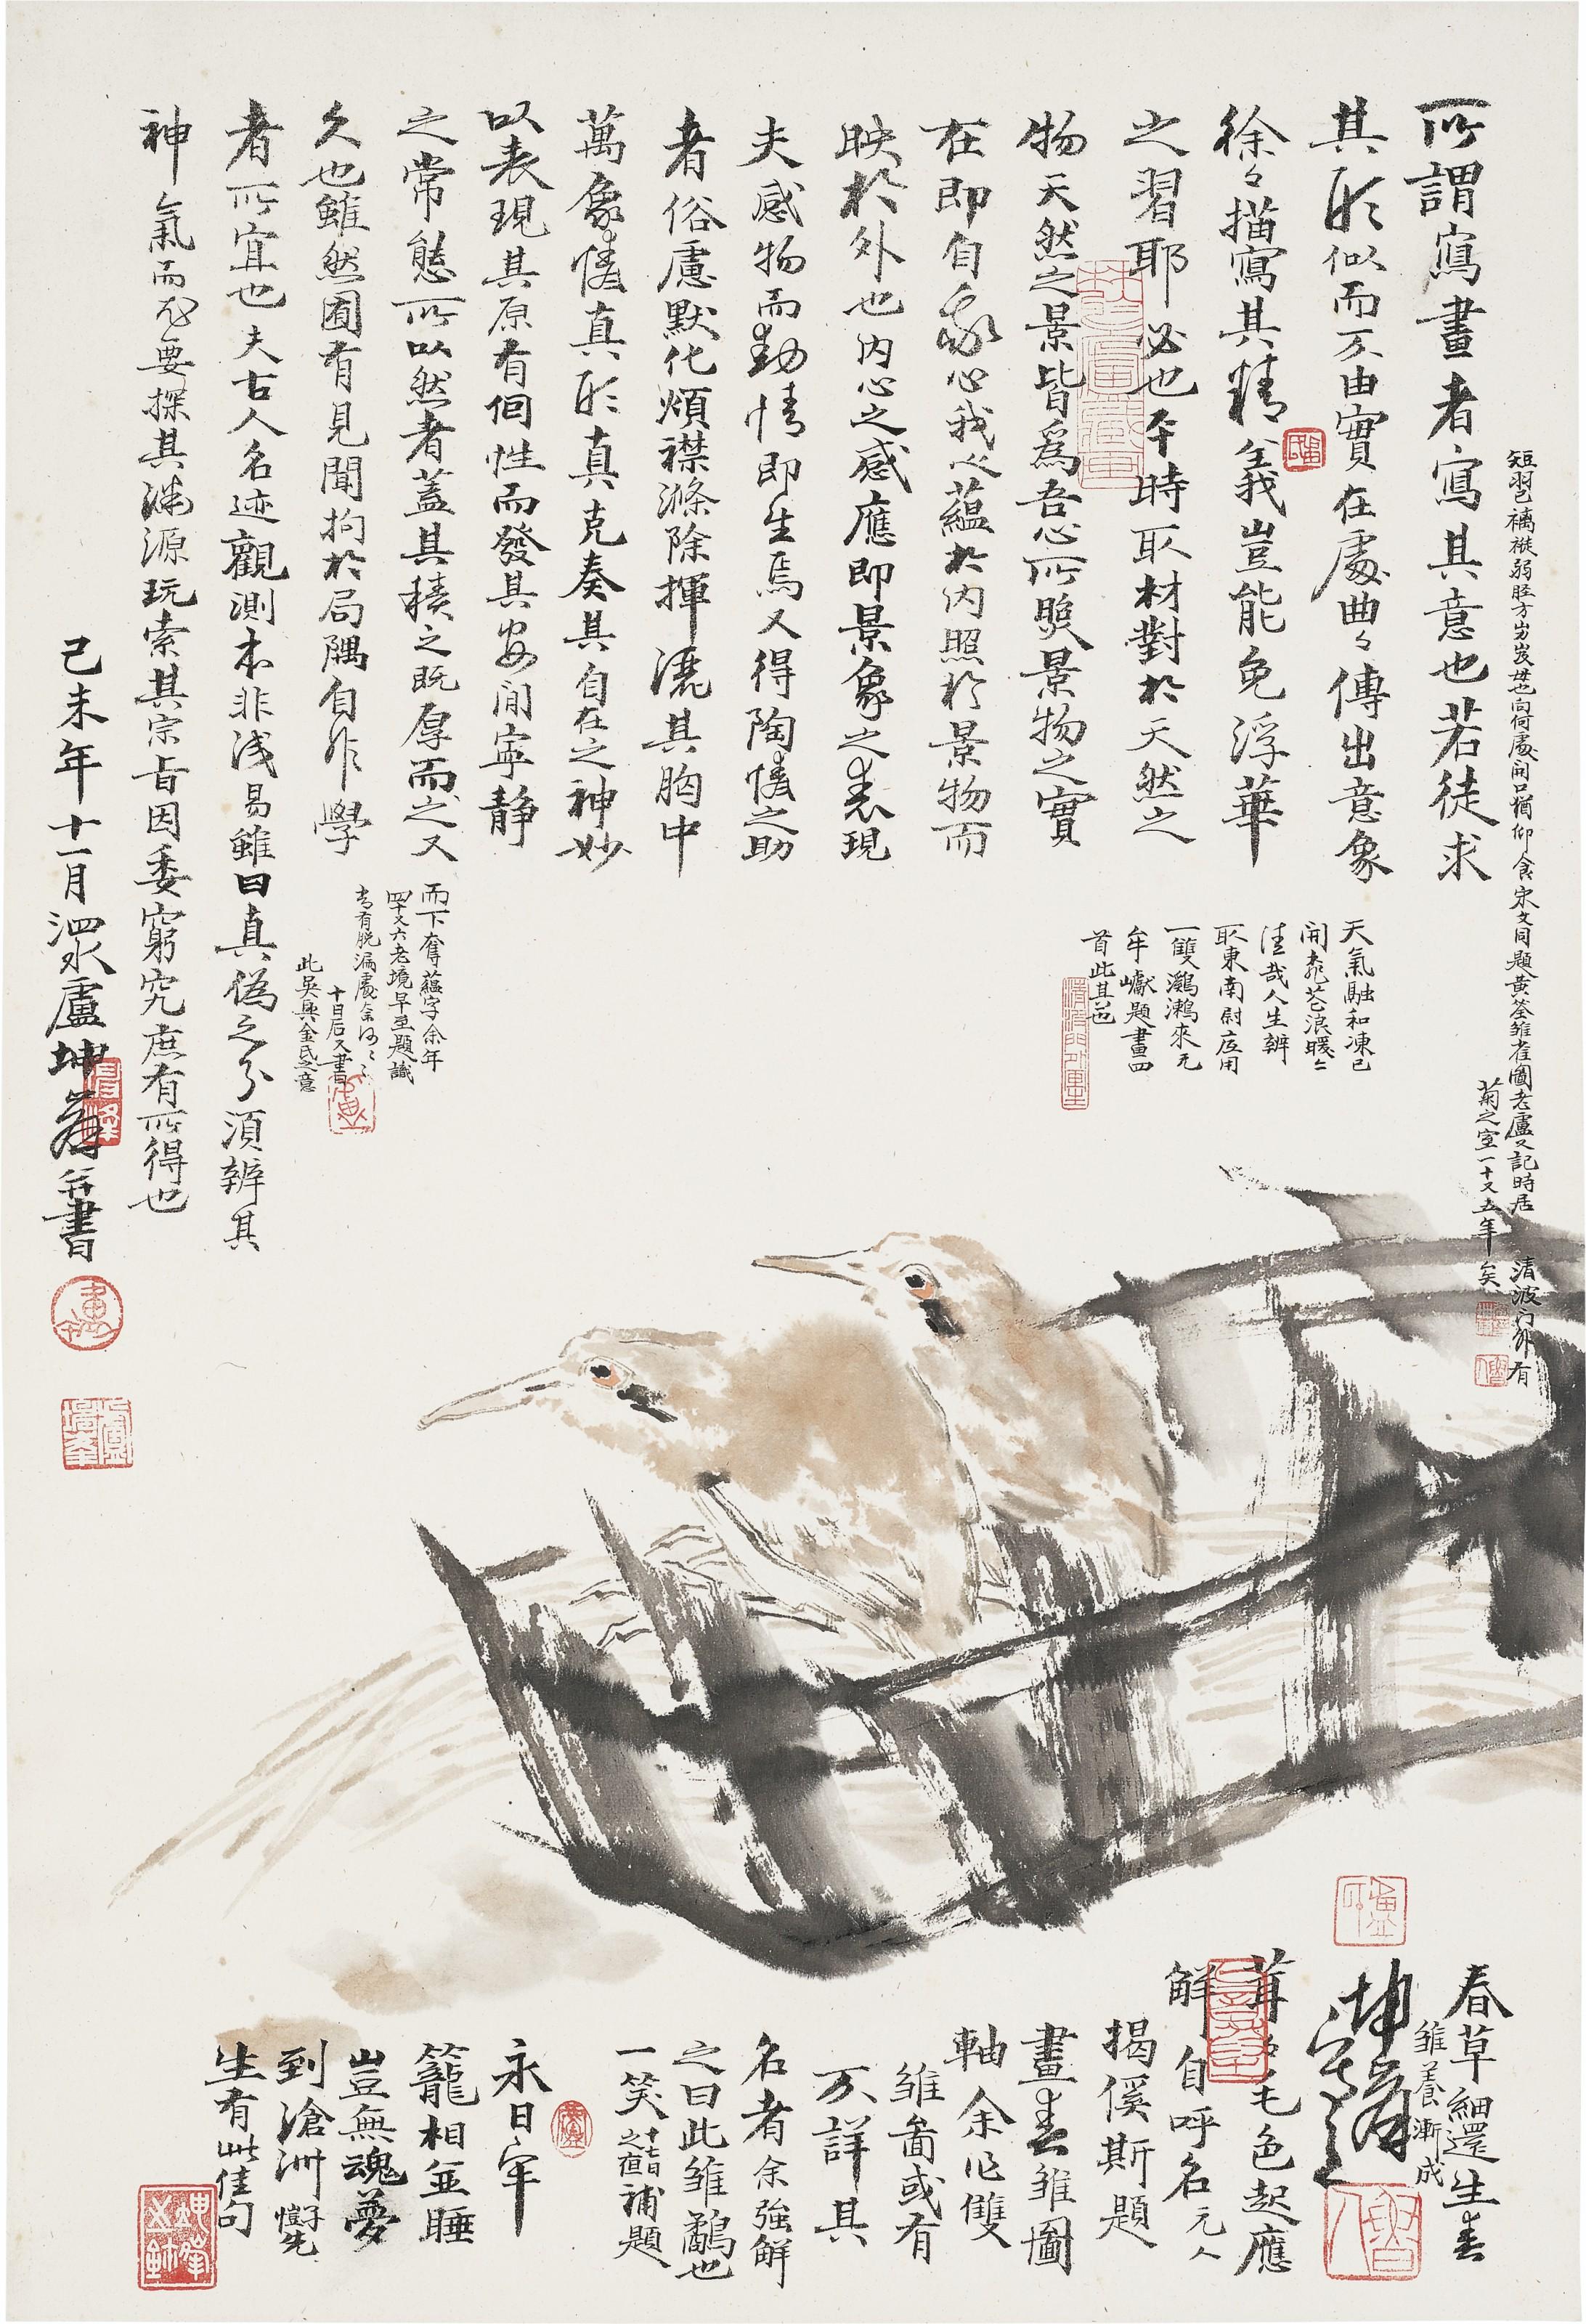 所謂寫畫者寫其意也若徒求
其形似而不由實在處曲々傳出意象
徐々描寫其精義豈能免浮華
之習耶必也平時取材對於天然之
物天然之景皆為吾心所照景物之實
在即自我心我心蘊於內照於景物而
映於外也內心之感應即景象之表現
夫感物而動情即生焉又得陶情之助
者俗慮默化煩襟滌除揮灑其胸中
萬象情真形真克奏其自在之神妙
以表現其原有個性而發其安閒寧靜
之常態所以然者蓋其積之既厚而之又
久也雖然囿有見聞拘於局隅自作學
者所宜也夫古人名迹觀測本非淺易雖曰真偽之分須辨其
神氣而尤要探其淵源玩索其宗旨因委窮究庶有所得也
己未年十一月泗水盧坤峰并書
而下奪蘊字余年
四十又六老境早至題識
書有脫漏處余
十日后又書
此吳興金氏之意
短翅襹褷弱脛方母也向何處開口猶仰食宋文同題黃荃雛雀圖老盧又記時居
清波門外有
菊之室一十又五年矣
天氣融和凍已
開乘花浪暖
佳哉人生辨
取東南尉应用
一雙鸂鶒來元
牟巘題畫四
首此其也
春草細還生春
雛養漸成
茸々毛色起應
解自呼名元人
揭傒斯題
畫春雛圖
軸余作雙
雛啚或有
不詳其
名者余強解
之曰此雛鷸也
一笑十七日之夜補題
永日牢
籠相並睡
豈無魂夢
到滄洲愷先
生有此佳句